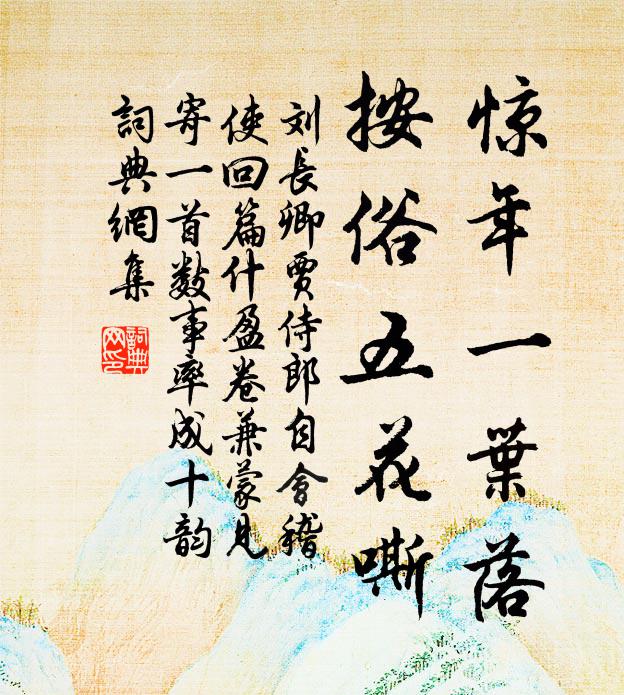 惊年一葉落
按俗五花嘶
刘長卿賈侍郎自會稽
使回篇什盈卷兼蒙見
寄一首数事率成十韵
詞典網集
詞典网印